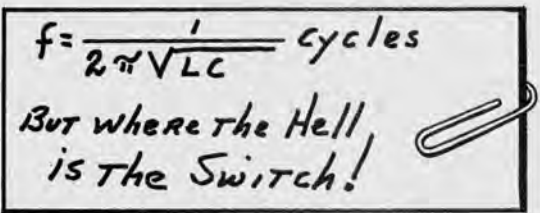 f = 1 / 2π√LC cycles
But where the Hell
is The Switch!